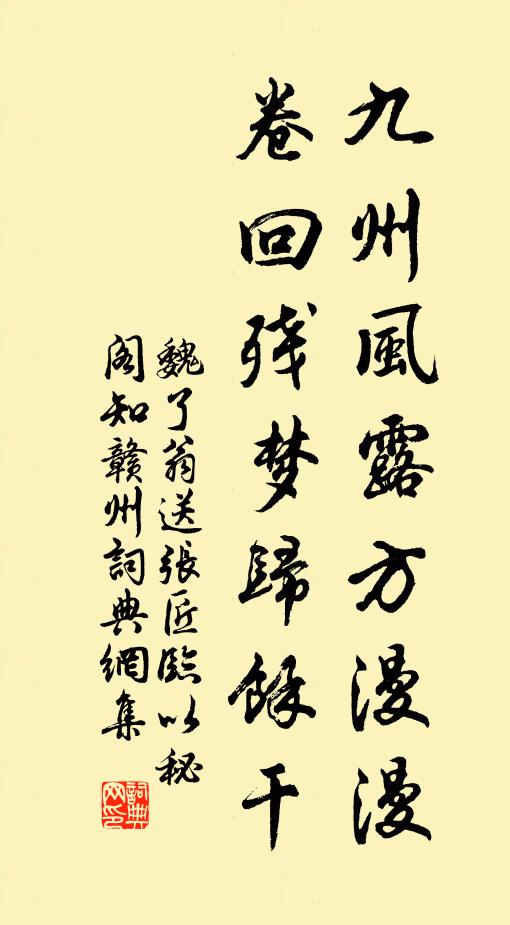 九州風露方漫漫
卷回残梦歸餘干
魏了翁送張匠臨以秘
阁知赣州詞典網集
詞典
网印